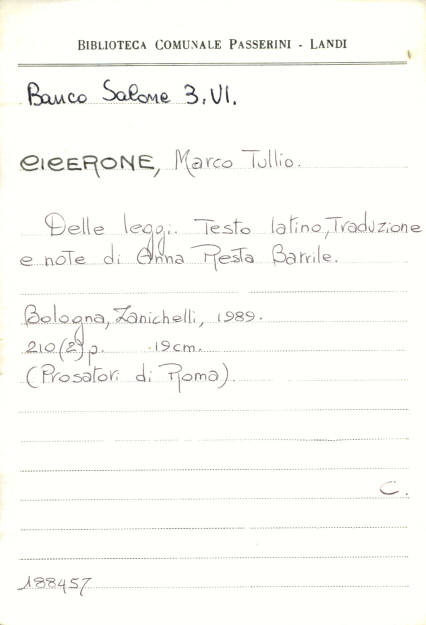 BIBLIOTECA COMUNALE PASSERINI - LANDI
Banco Salone 3.VI.
CICERONE, Marco Tullio.
Delle leggi. Testo latino, Traduzione
e note di Anna Resta Barrile.
Bologna, Zanichelli, 1989.
210 (2) p. 19 cm.
(Prosatori di Roma).
C.
188457